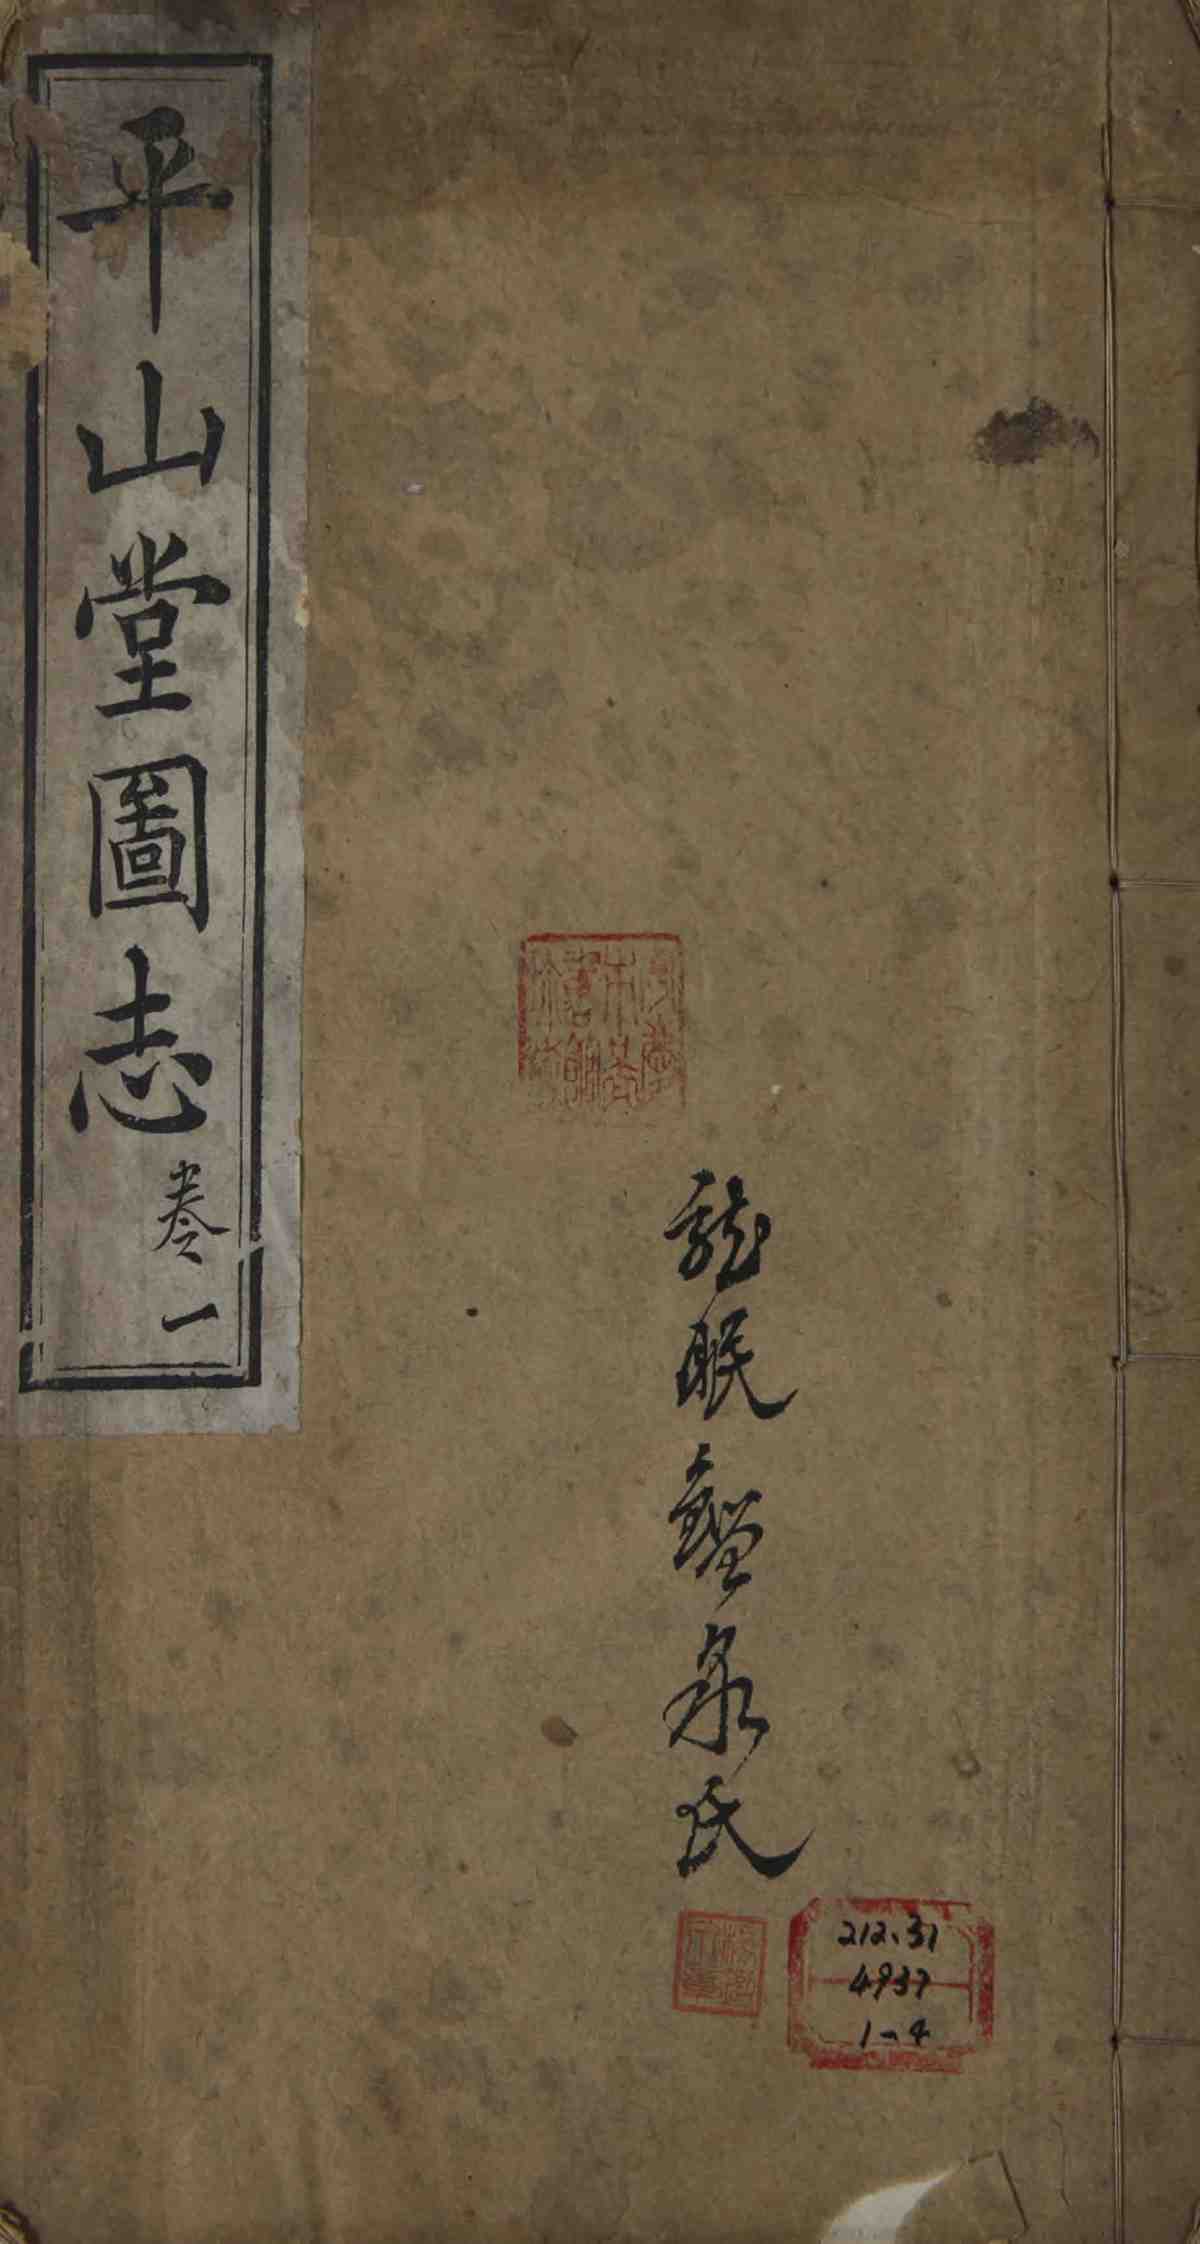 平山堂圖志
卷一
龍眠藝泉氏
212.31
4937
1-4